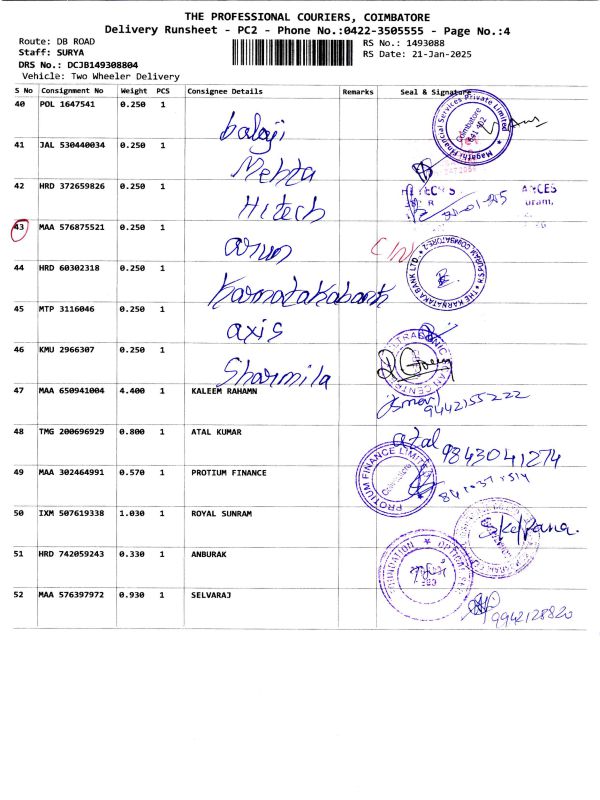 THE PROFESSIONAL COURIERS, COIMBATORE
Delivery Runsheet - PC2 - Phone No.:0422-3505555 - Page No.:4
Route: DB ROAD
RS No.: 1493088
Staff: SURYA
RS Date: 21-Jan-2025
DRS No.: DCJB149308804
Vehicle: Two Wheeler Delivery
S No Consignment No Weight PCS Consignee Details Remarks Seal & Signature
40 POL 1647541 0.250 1 balaji
Magathi Financial Services Private Limited
Coimbatore
41 JAL 530440034 0.250 1 Mehta
42 HRD 372659826 0.250 1 Hitech
43 MAA 576875521 0.250 1 arun
44 HRD 60302318 0.250 1 Karnatakabank
THE KARNATAKA BANK LTD. R.S. PURAM, COIMBATORE-2
45 MTP 3116046 0.250 1 axis
46 KMU 2966307 0.250 1 Sharmila
47 MAA 650941004 4.400 1 KALEEM RAHAMN
9442155222
48 TMG 200696929 0.800 1 ATAL KUMAR
atal
9843041274
49 MAA 302464991 0.570 1 PROTIUM FINANCE
PROTIUM FINANCE LIMITED
Coimbatore
50 IXM 507619338 1.030 1 ROYAL SUNRAM
51 HRD 742059243 0.330 1 ANBURAK
FOUNDATION
52 MAA 576397972 0.930 1 SELVARAJ
9942128820